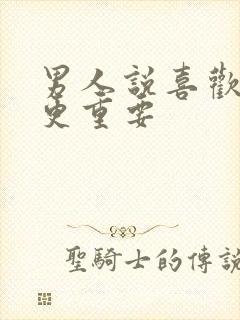 男人說喜歡
更重要
聖騎士的傳說